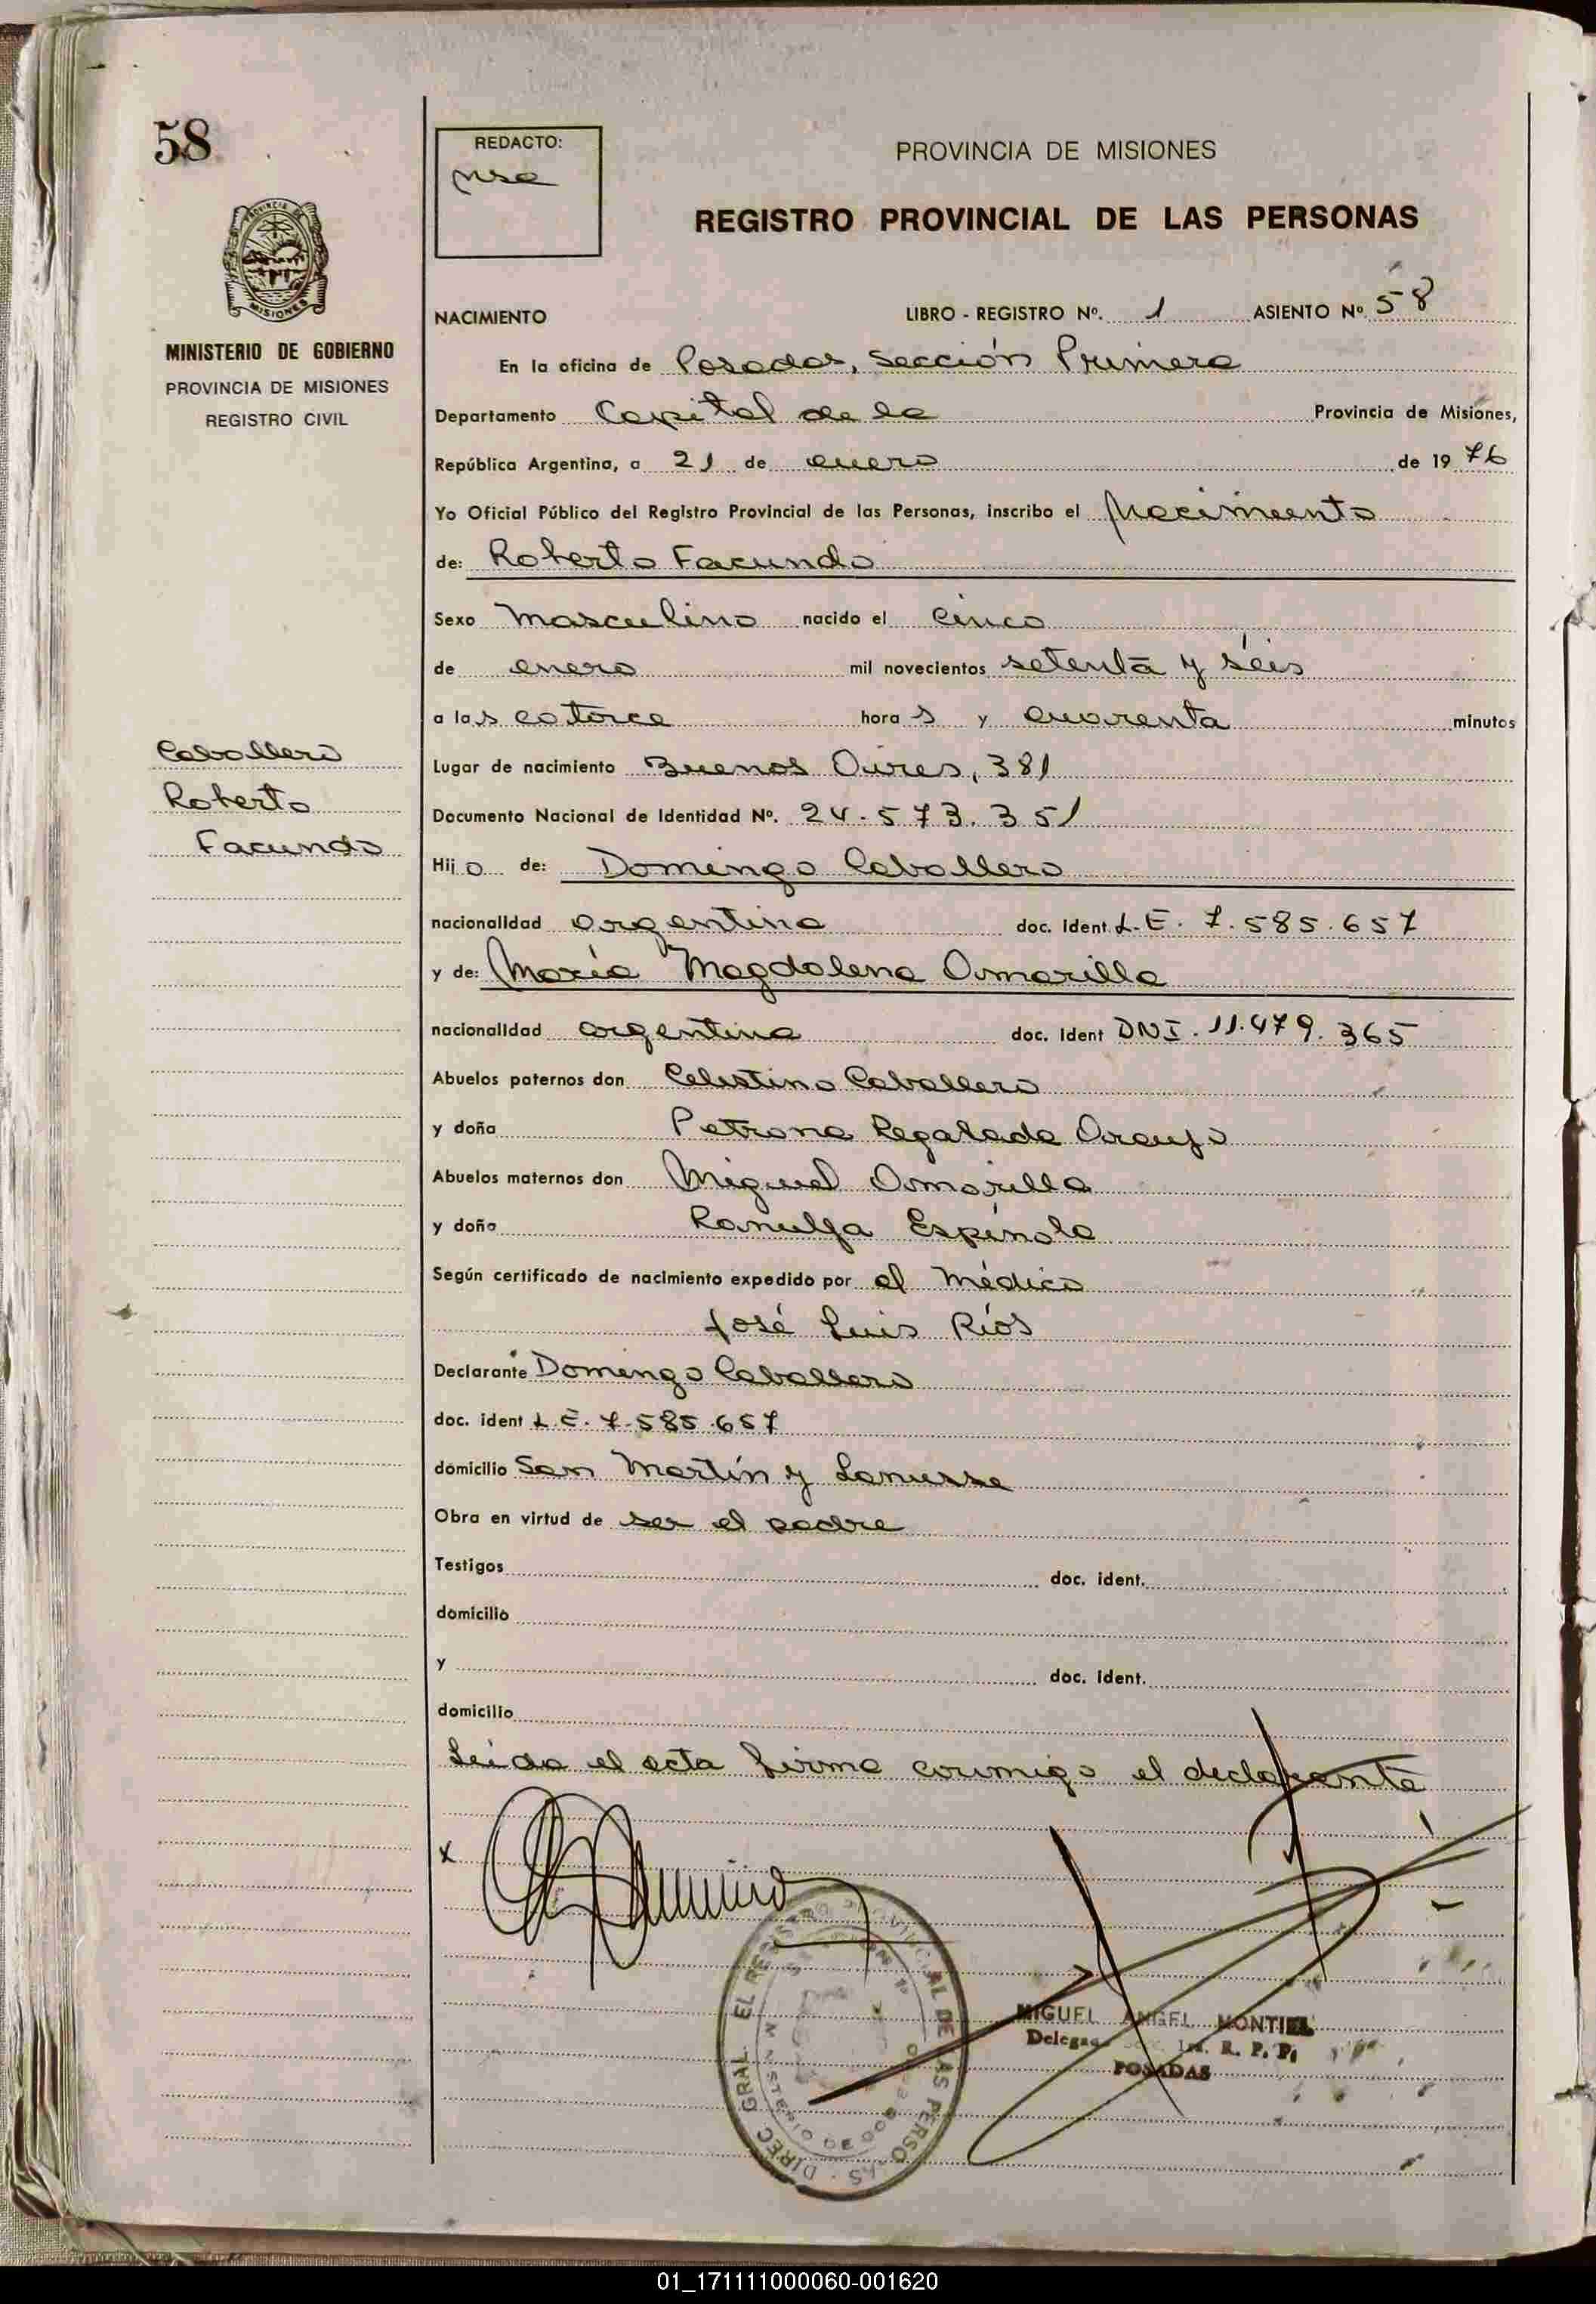 58
REDACTO:
PROVINCIA DE MISIONES
REGISTRO PROVINCIAL DE LAS PERSONAS
PROVINCIA DE
MISIONES
MINISTERIO DE GOBIERNO
PROVINCIA DE MISIONES
REGISTRO CIVIL
NACIMIENTO LIBRO - REGISTRO Nº. 1 ASIENTO Nº 58
En la oficina de Posadas, Sección Primera
Departamento Capital de la Provincia de Misiones,
República Argentina, a 21 de enero de 19 76
Yo Oficial Público del Registro Provincial de las Personas, inscribo el Nacimiento
de: Roberto Facundo
Sexo Masculino nacido el cinco
de enero mil novecientos setenta y seis
a las catorce horas y cuarenta minutos
Caballero
Roberto
Facundo
Lugar de nacimiento Buenos Aires, 381
Documento Nacional de Identidad Nº. 24.573.351
Hijo de: Domingo Caballero
nacionalidad argentina doc. Ident. L.E. 7.585.657
y de: María Magdalena Amarilla
nacionalidad argentina doc. Ident DNI. 11.479.365
Abuelos paternos don Celestino Caballero
y doña Petrona Regalada Araujo
Abuelos maternos don Miguel Amarilla
y doña Ranulfa Espínola
Según certificado de nacimiento expedido por el Médico
José Luis Ríos
Declarante Domingo Caballero
doc. ident L.E. 7.585.657
domicilio San Martín y Lanusse
Obra en virtud de ser el padre
Testigos doc. ident.
domicilio
y doc. Ident.
domicilio
Leída el acta firma conmigo el declarante
x
DIREC. GRAL. EL REGISTRO PROVINCIAL DE LAS PERSONAS
MINISTERIO DE GOBIERNO
MIGUEL ANGEL MONTIEL
R. P. P.
POSADAS
01_171111000060-001620